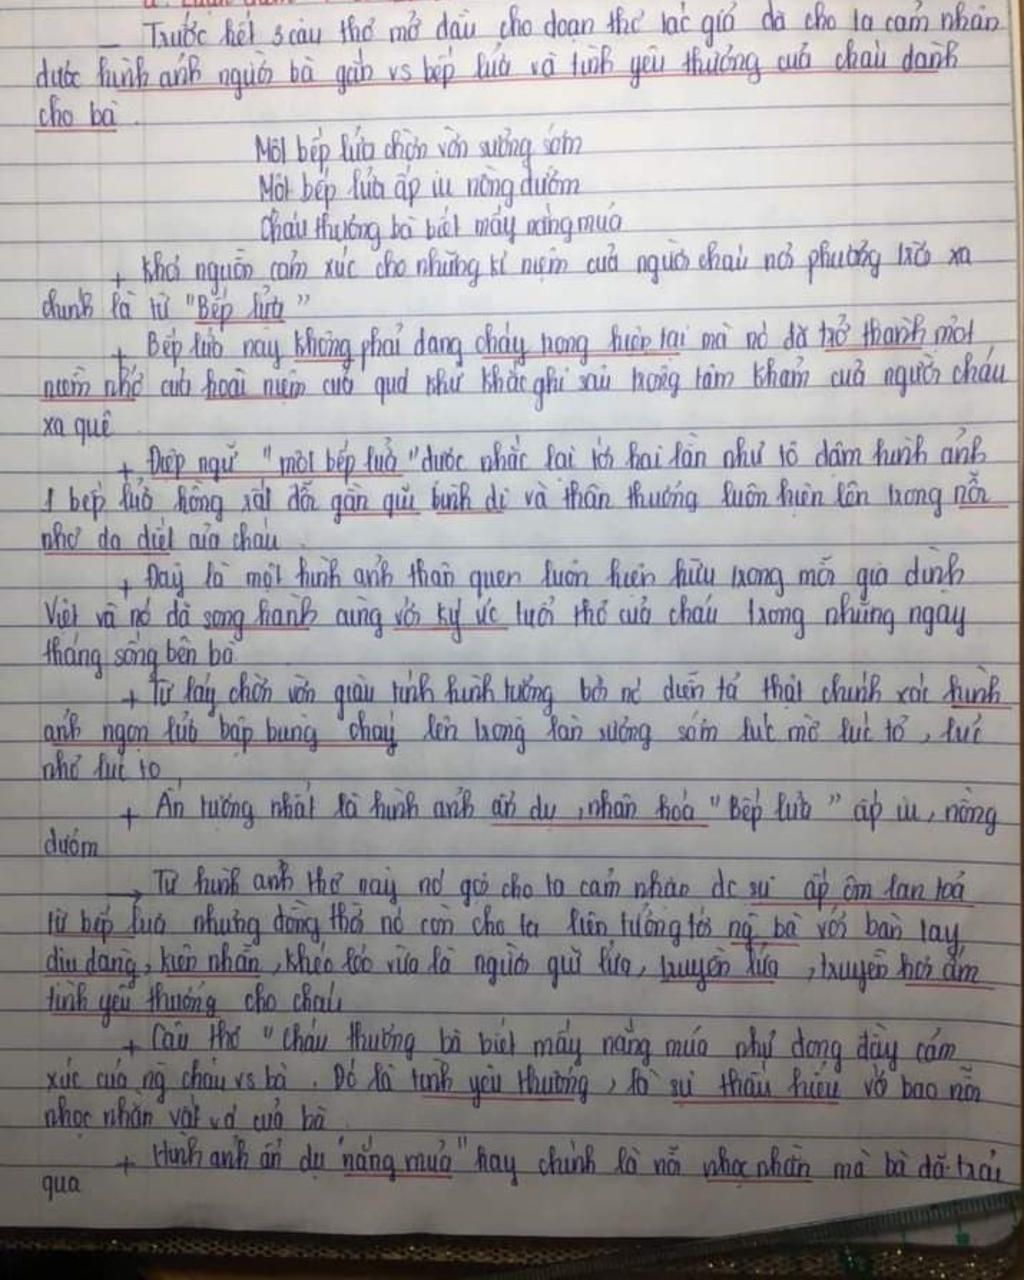 − Trước hết 3 câu thơ mở đầu cho đoạn thơ tác giả đã cho ta cảm nhận
được hình ảnh người bà gắn vs bếp lửa và tình yêu thương của cháu dành
cho bà.
Một bếp lửa chờn vờn sương sớm
Một bếp lửa ấp iu nồng đượm
Cháu thương bà biết mấy nắng mưa
+ Khơi nguồn cảm xúc cho những kỉ niệm của người cháu nơi phương trời xa
chính là từ "Bếp lửa"
+ Bếp lửa này không phải đang cháy trong hiện tại mà nó đã trở thành một
niềm nhớ của hoài niệm của quá khứ khắc ghi sâu trong tâm khảm của người cháu
xa quê
+ Điệp ngữ "một bếp lửa" được nhắc lại tới hai lần như tô đậm hình ảnh
1 bếp lửa hồng rất đỗi gần gũi bình dị và thân thương luôn hiện lên trong nỗi
nhớ da diết của cháu.
+ Đây là một hình ảnh thân quen luôn hiện hữu trong mỗi gia đình
Việt và nó đã song hành cùng với ký ức tuổi thơ của cháu trong những ngày
tháng sống bên bà.
+ Từ láy chờn vờn giàu tính hình tượng bởi nó diễn tả thật chính xác hình
ảnh ngọn lửa bập bùng cháy lên trong làn sương sớm lúc mờ lúc tỏ, lúc
nhỏ lúc to.
+ Ấn tượng nhất là hình ảnh ẩn dụ, nhân hoá "Bếp lửa" ấp iu, nồng
đượm
→ Từ hình ảnh thơ này nó gợi cho ta cảm nhận đc sự ấp ôm lan toả
từ bếp lửa nhưng đồng thời nó còn cho ta liên tưởng tới ng bà với bàn tay
dịu dàng, kiên nhẫn, khéo léo vừa là người giữ lửa, truyền lửa, truyền hơi ấm
tình yêu thương cho cháu
+ Câu thơ "cháu thương bà biết mấy nắng mưa như đong đầy cảm
xúc của ng cháu vs bà. Đó là tình yêu thương, là sự thấu hiểu về bao nỗi
nhọc nhằn vất vả của bà
+ Hình ảnh ẩn dụ "nắng mưa" hay chính là nỗi nhọc nhằn mà bà đã trải
qua